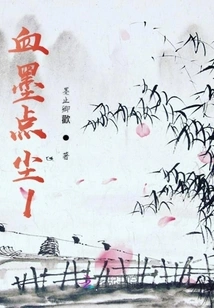 血墨点尘丫
墨止卿歡●著